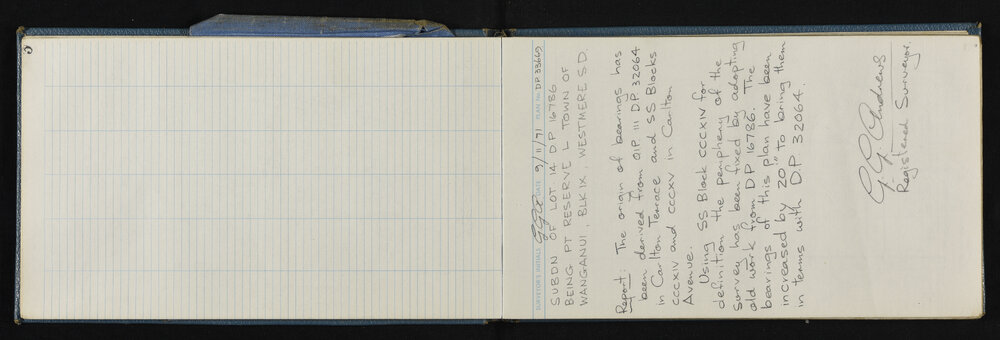 5
SURVEYOR'S INITIALS GGA DATE 9/11/71 PLAN No. DP 33669
SUBDN OF LOT 14 DP 16786
BEING PT RESERVE L TOWN OF
WANGANUI, BLK IX, WESTMERE S.D.
Report: The origin of bearings has
been derived from OIP III DP 32064
in Carlton Terrace and SS Blocks
CCCXIV and CCCXV in Carlton
Avenue.
Using SS Block CCCXIV for
definition the periphery of the
survey has been fixed by adopting
old work from DP 16786. The
bearings of this plan have been
increased by 20" to bring them
in terms with D.P 32064.
G. G. Andrews
Registered Surveyor.